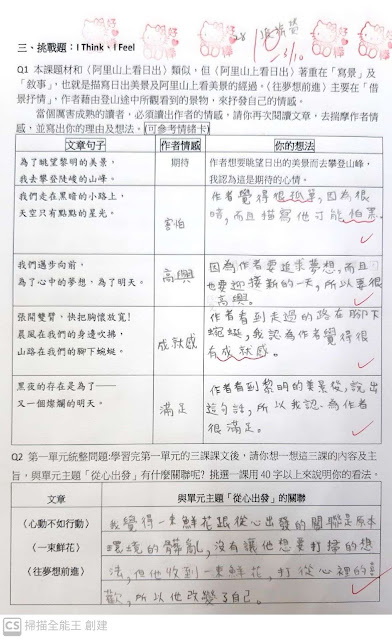 三、挑戰題：I Think、I Feel
Q1 本課題材和〈阿里山上看日出〉類似，但〈阿里山上看日出〉著重在「寫景」及
「敘事」，也就是描寫日出美景及阿里山上看美景的經過。〈往夢想前進〉主要在「借
景抒情」，作者藉由登山途中所觀看到的景物，來抒發自己的情感。
當個厲害成熟的讀者，必須讀出作者的情感，請你再次閱讀文章，去揣摩作者情
感，並寫出你的理由及想法。(可參考情緒卡)
文章句子 作者情感 你的想法
為了眺望黎明的美景，
我去攀登陡峻的山峰。
期待
作者想要眺望日出的美景而去攀登山峰，
我認為這是期待的心情。
我們走在黑暗的小路上，
天空只有點點的星光。
害怕
作者覺得很孤單，因為很
暗，而且描寫他可能怕黑。
我們邁步向前，
為了心中的夢想，為了明天。
高興
因為作者要追求夢想，而且
也要迎接新的一天，所以要很
高興。
張開雙臂，快把胸懷放寬!
晨風在我們的身邊吹拂，
山路在我們的腳下蜿蜒。
成就感
作者看到走過的路在腳下
蜿蜒，我認為作者覺得很
有成就感。
黑夜的存在是為了——
又一個燦爛的明天。
滿足
作者看到黎明的美景後，說出
這句話，所以我認為作者
很滿足。
Q2 第一單元統整問題:學習完第一單元的三課課文後，請你想一想這三課的內容及主
旨，與單元主題「從心出發」有什麼關聯呢? 挑選一課用 40 字以上來說明你的看法。
文章 與單元主題「從心出發」的關聯
〈心動不如行動〉
〈一束鮮花〉
〈往夢想前進〉
我覺得一束鮮花跟從心出發的關聯是原本
環境的髒亂，沒有讓他想要打掃的想
法，但他收到一束鮮花，打從心裡的喜
歡，所以他改變了自己。
CS 掃描全能王 創建